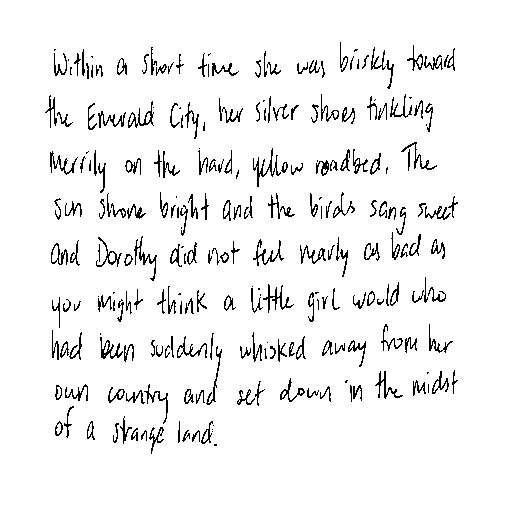 Within a short time she was briskly toward
the Emerald City, her silver shoes tinkling
merrily on the hard, yellow roadbed. The
sun shone bright and the birds sang sweet
and Dorothy did not feel nearly as bad as
you might think a little girl would who
had been suddenly whisked away from her
own country and set down in the midst
of a strange land.